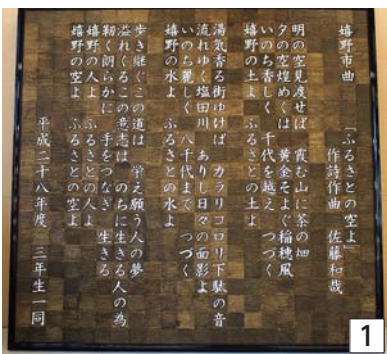 嬉野市曲 「ふるさとの空よ」
作詩作曲 佐藤和哉
明の空見渡せば 霞む山に茶の畑
夕の空煌めくは 黄金そよぐ稲穂風
いのち香しく 千代を越え つづく
嬉野の土よ ふるさとの土よ
湯気香る街ゆけば カラリコロリ下駄の音
流れゆく塩田川 ありし日々の面影よ
いのち麗しく 八千代まで つづく
嬉野の水よ ふるさとの水よ
歩き継ぐこの道は 栄え願う人の夢
溢れくるこの意志は のちに生きる人の為
靭く朗らかに 手をつなぎ 生きる
嬉野の人よ ふるさとの人よ
嬉野の空よ ふるさとの空よ
平成二十八年度 三年生一同
1